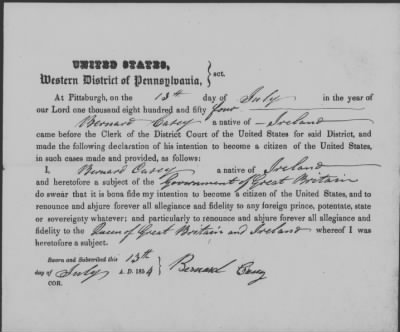 UNITED STATES,
Western District of Pennsylvania, } sct.
At Pittsburgh, on the 13th day of July in the year of
our Lord one thousand eight hundred and fifty four
Bernard Casey a native of Ireland
came before the Clerk of the District Court of the United States for said District, and
made the following declaration of his intention to become a citizen of the United States,
in such cases made and provided, as follows:
I, Bernard Casey a native of Ireland
and heretofore a subject of the Government of Great Britain
do swear that it is bona fide my intention to become a citizen of the United States, and to
renounce and abjure forever all allegiance and fidelity to any foreign prince, potentate, state
or sovereignty whatever; and particularly to renounce and abjure forever all allegiance and
fidelity to the Queen of Great Britain and Ireland whereof I was
heretofore a subject.
Sworn and Subscribed this 13th
day of July A. D. 1854 } Bernard Casey
COR.